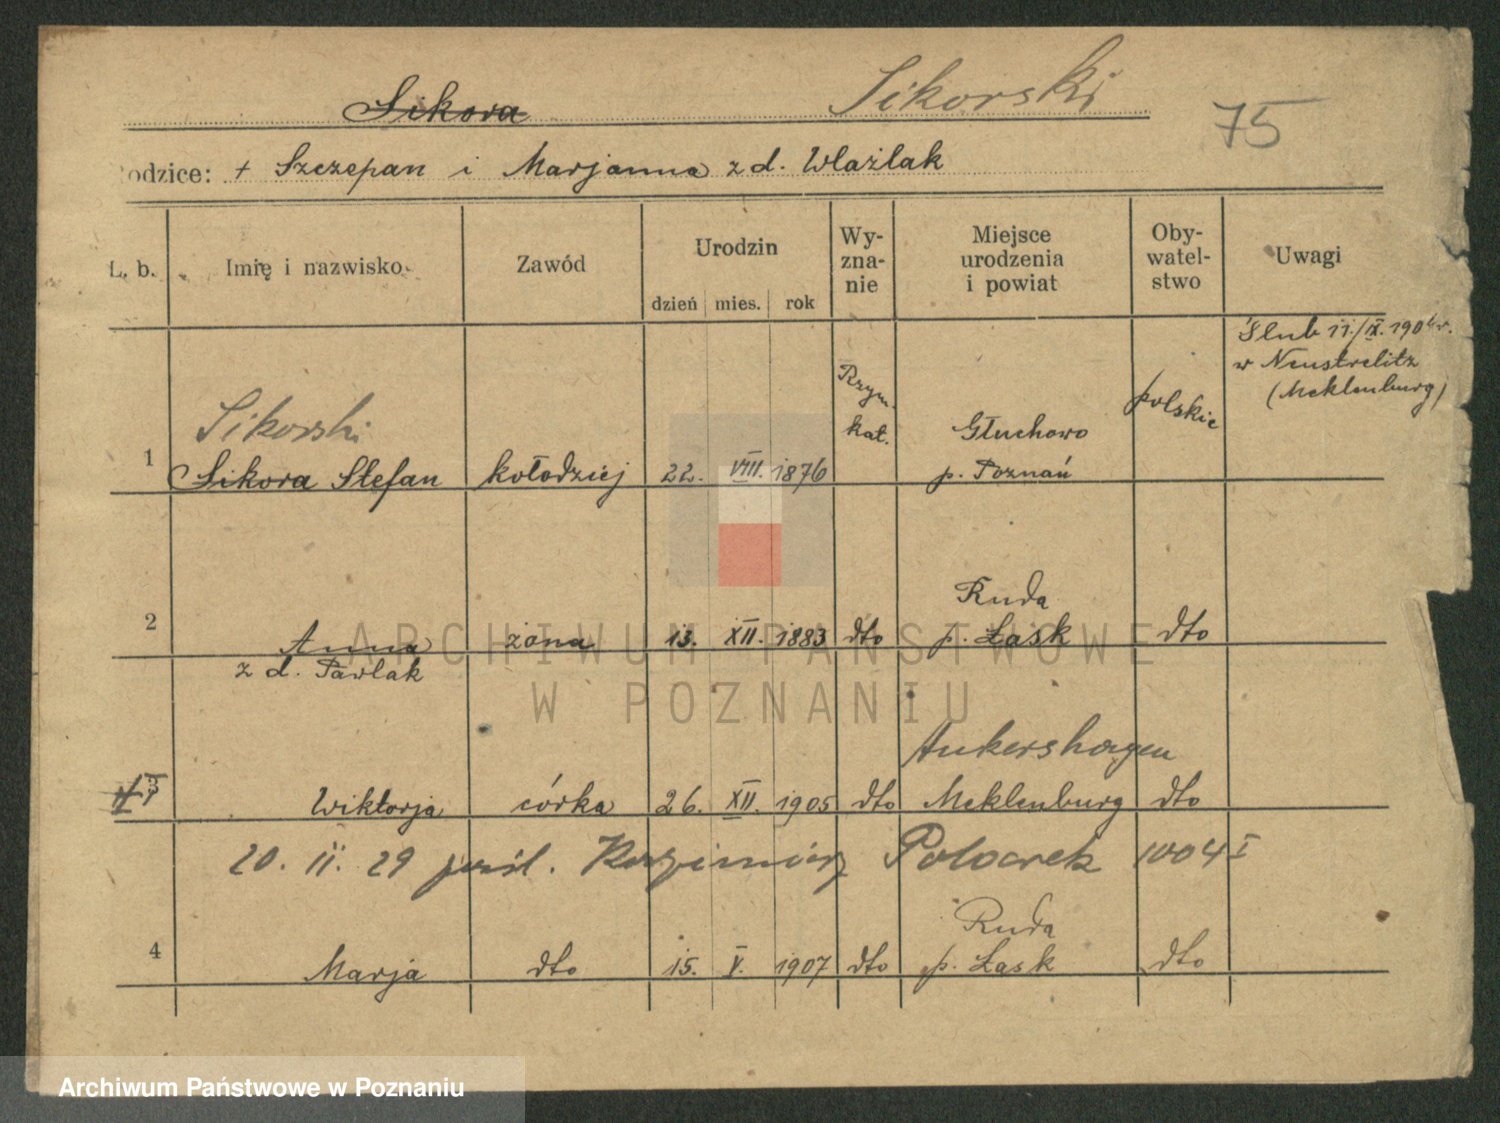 Sikora Sikorski
75
odzice: + Szczepan i Marjanna z d. Wlaźlak
L. b. Imię i nazwisko Zawód Urodzin dzień mies. rok Wy-zna-nie Miejsce urodzenia i powiat Oby-watel-stwo Uwagi
Ślub 11./IX. 1904r.
w Neustrelitz
(Meklenburg)
Sikorski Rzym. kat. Głuchowo polskie
1 Sikora Stefan kołodziej 22. VIII. 1876 p. Poznań
Ruda
2 Anna żona 13. XII. 1883 dto p. Łask dto
z d. Pawlak
ARCHIWUM PAŃSTWOWE
W POZNANIU
Ankershagen
3 Wiktorja córka 26. XII. 1905 dto Meklenburg dto
20. II. 29 Kazimierz 1004 I
Ruda
4 Marja dto 15. V. 1907 dto p. Łask dto
Archiwum Państwowe w Poznaniu